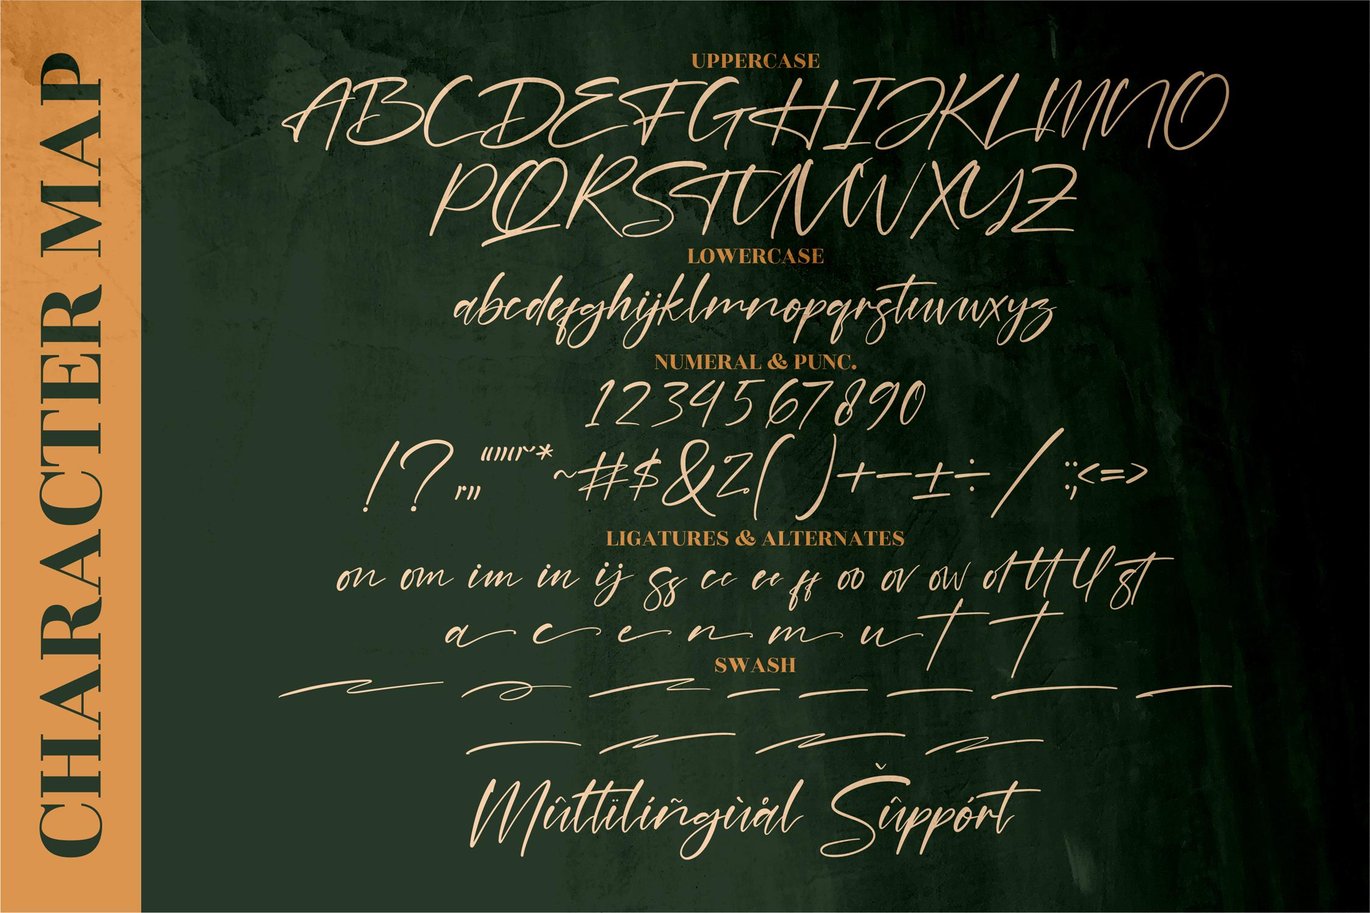 CHARACTER MAP
UPPERCASE
ABCDEFGHIJKLMNO
PQRSTUVWXYZ
LOWERCASE
abcdefghijklmnopqrstuvwxyz
NUMERAL & PUNC.
1234567890
!? * ~#$&%()+−±÷/:;<=>
LIGATURES & ALTERNATES
on om im in ij ss cc ee ff oo ov ow ot tt ll st
a c e n m u t t
SWASH
Mûttïlíñgùål Šûppórt